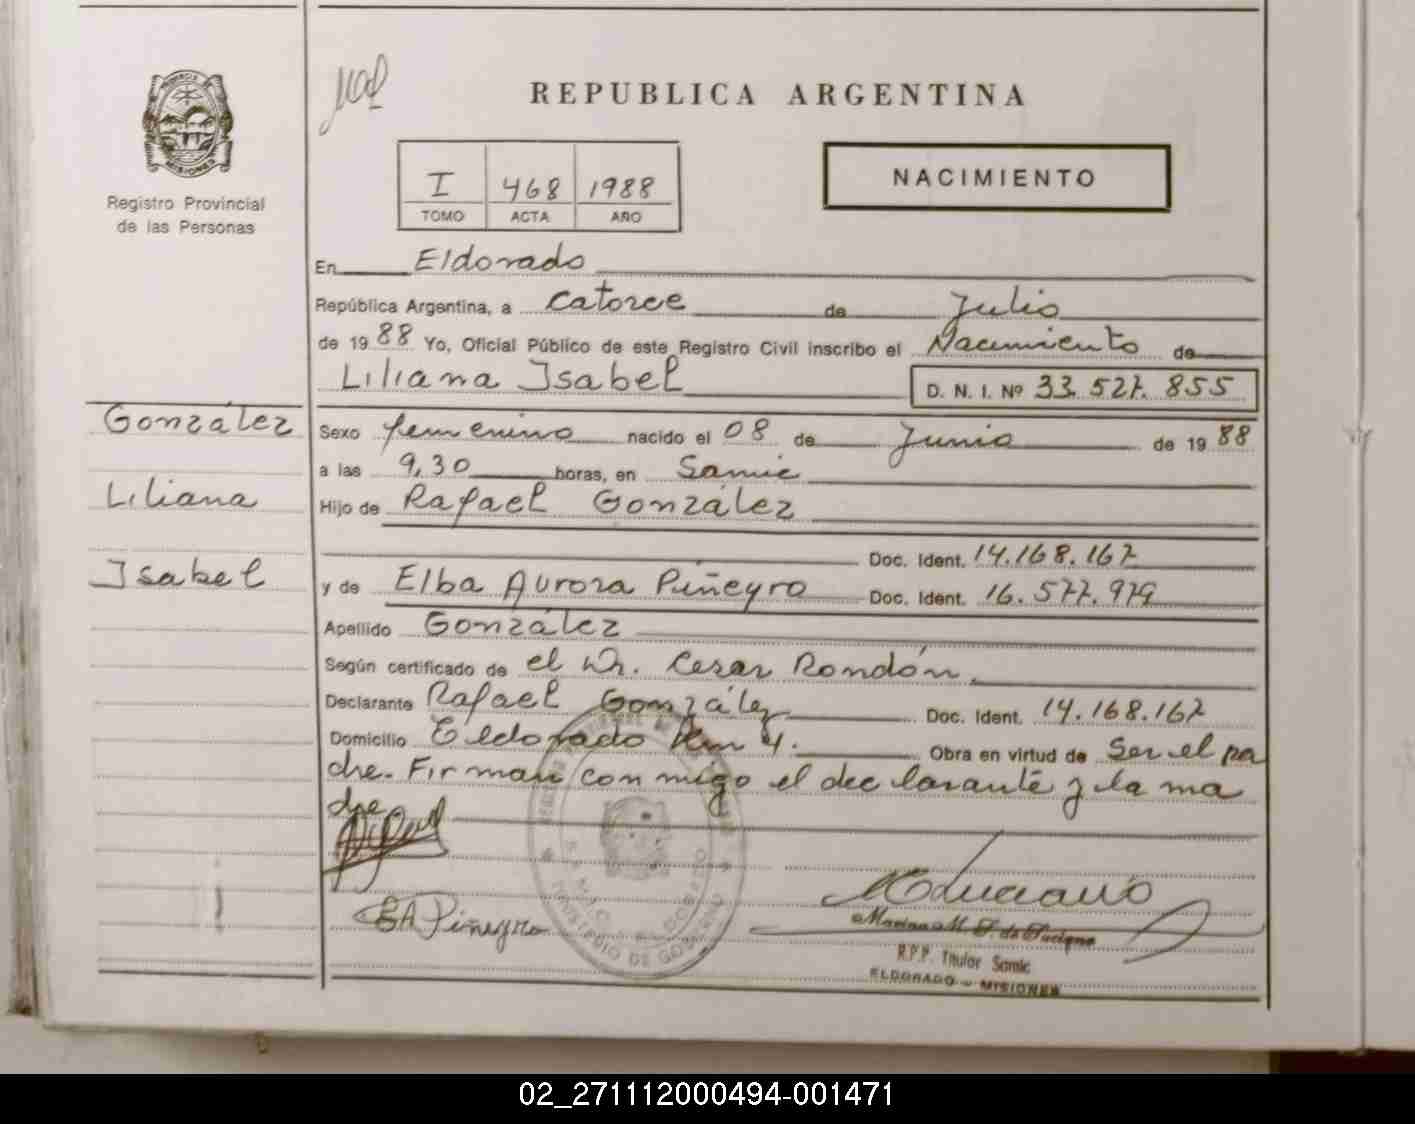 REPUBLICA ARGENTINA
PROVINCIA DE
MISIONES
Registro Provincial
de las Personas
I 468 1988
TOMO ACTA AÑO
NACIMIENTO
En Eldorado
República Argentina, a Catorce de Julio
de 1988 Yo, Oficial Público de este Registro Civil inscribo el Nacimiento de
Liliana Isabel D. N. I. Nº 33.527.855
González
Liliana
Isabel
Sexo femenino nacido el 08 de Junio de 1988
a las 9,30 horas, en Samic
Hijo de Rafael González
Doc. Ident. 14.168.167
y de Elba Aurora Piñeyro Doc. Ident. 16.577.979
Apellido González
Según certificado de el Dr. Cesar Rondón.
Declarante Rafael González Doc. Ident. 14.168.167
Domicilio Eldorado Km 4. Obra en virtud de Ser el pa
dre. Firman conmigo el declarante y la ma
dre
EA Piñeyro
R.P.P. Titular Samic
ELDORADO - MISIONES
MINISTERIO DE GOBIERNO
02_271112000494-001471